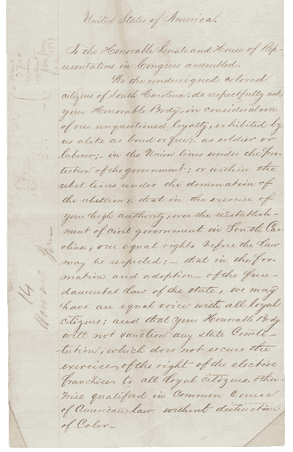 United States of America.
To the Honorable Senate and House of Rep-
resentatives in Congress assembled.
We the undersigned colored
citizens of South Carolina, do respectfully ask
your Honorable Body, in consideration
of our unquestioned loyalty, exhibited by
us alike as bond or free; as soldier or
laborer; in the Union lines under the Pro-
tection of the government; or within the
rebel lines under the domination of
the rebellion; that in the exercise of
your high authority, over the reestablish-
ment of civil government in South Ca-
rolina, our equal rights before the law
may be respected; — that in the for-
mation and adoption of the fun-
damental law of the state, we may
have an equal voice with all loyal
citizens; and that your Honorable Body
will not sanction any state Consti-
tution, which does not secure the
exercise of the right of the elective
franchise to all loyal citizens, other-
wise qualified in the Common Course
of American law, without distinction
of Color—